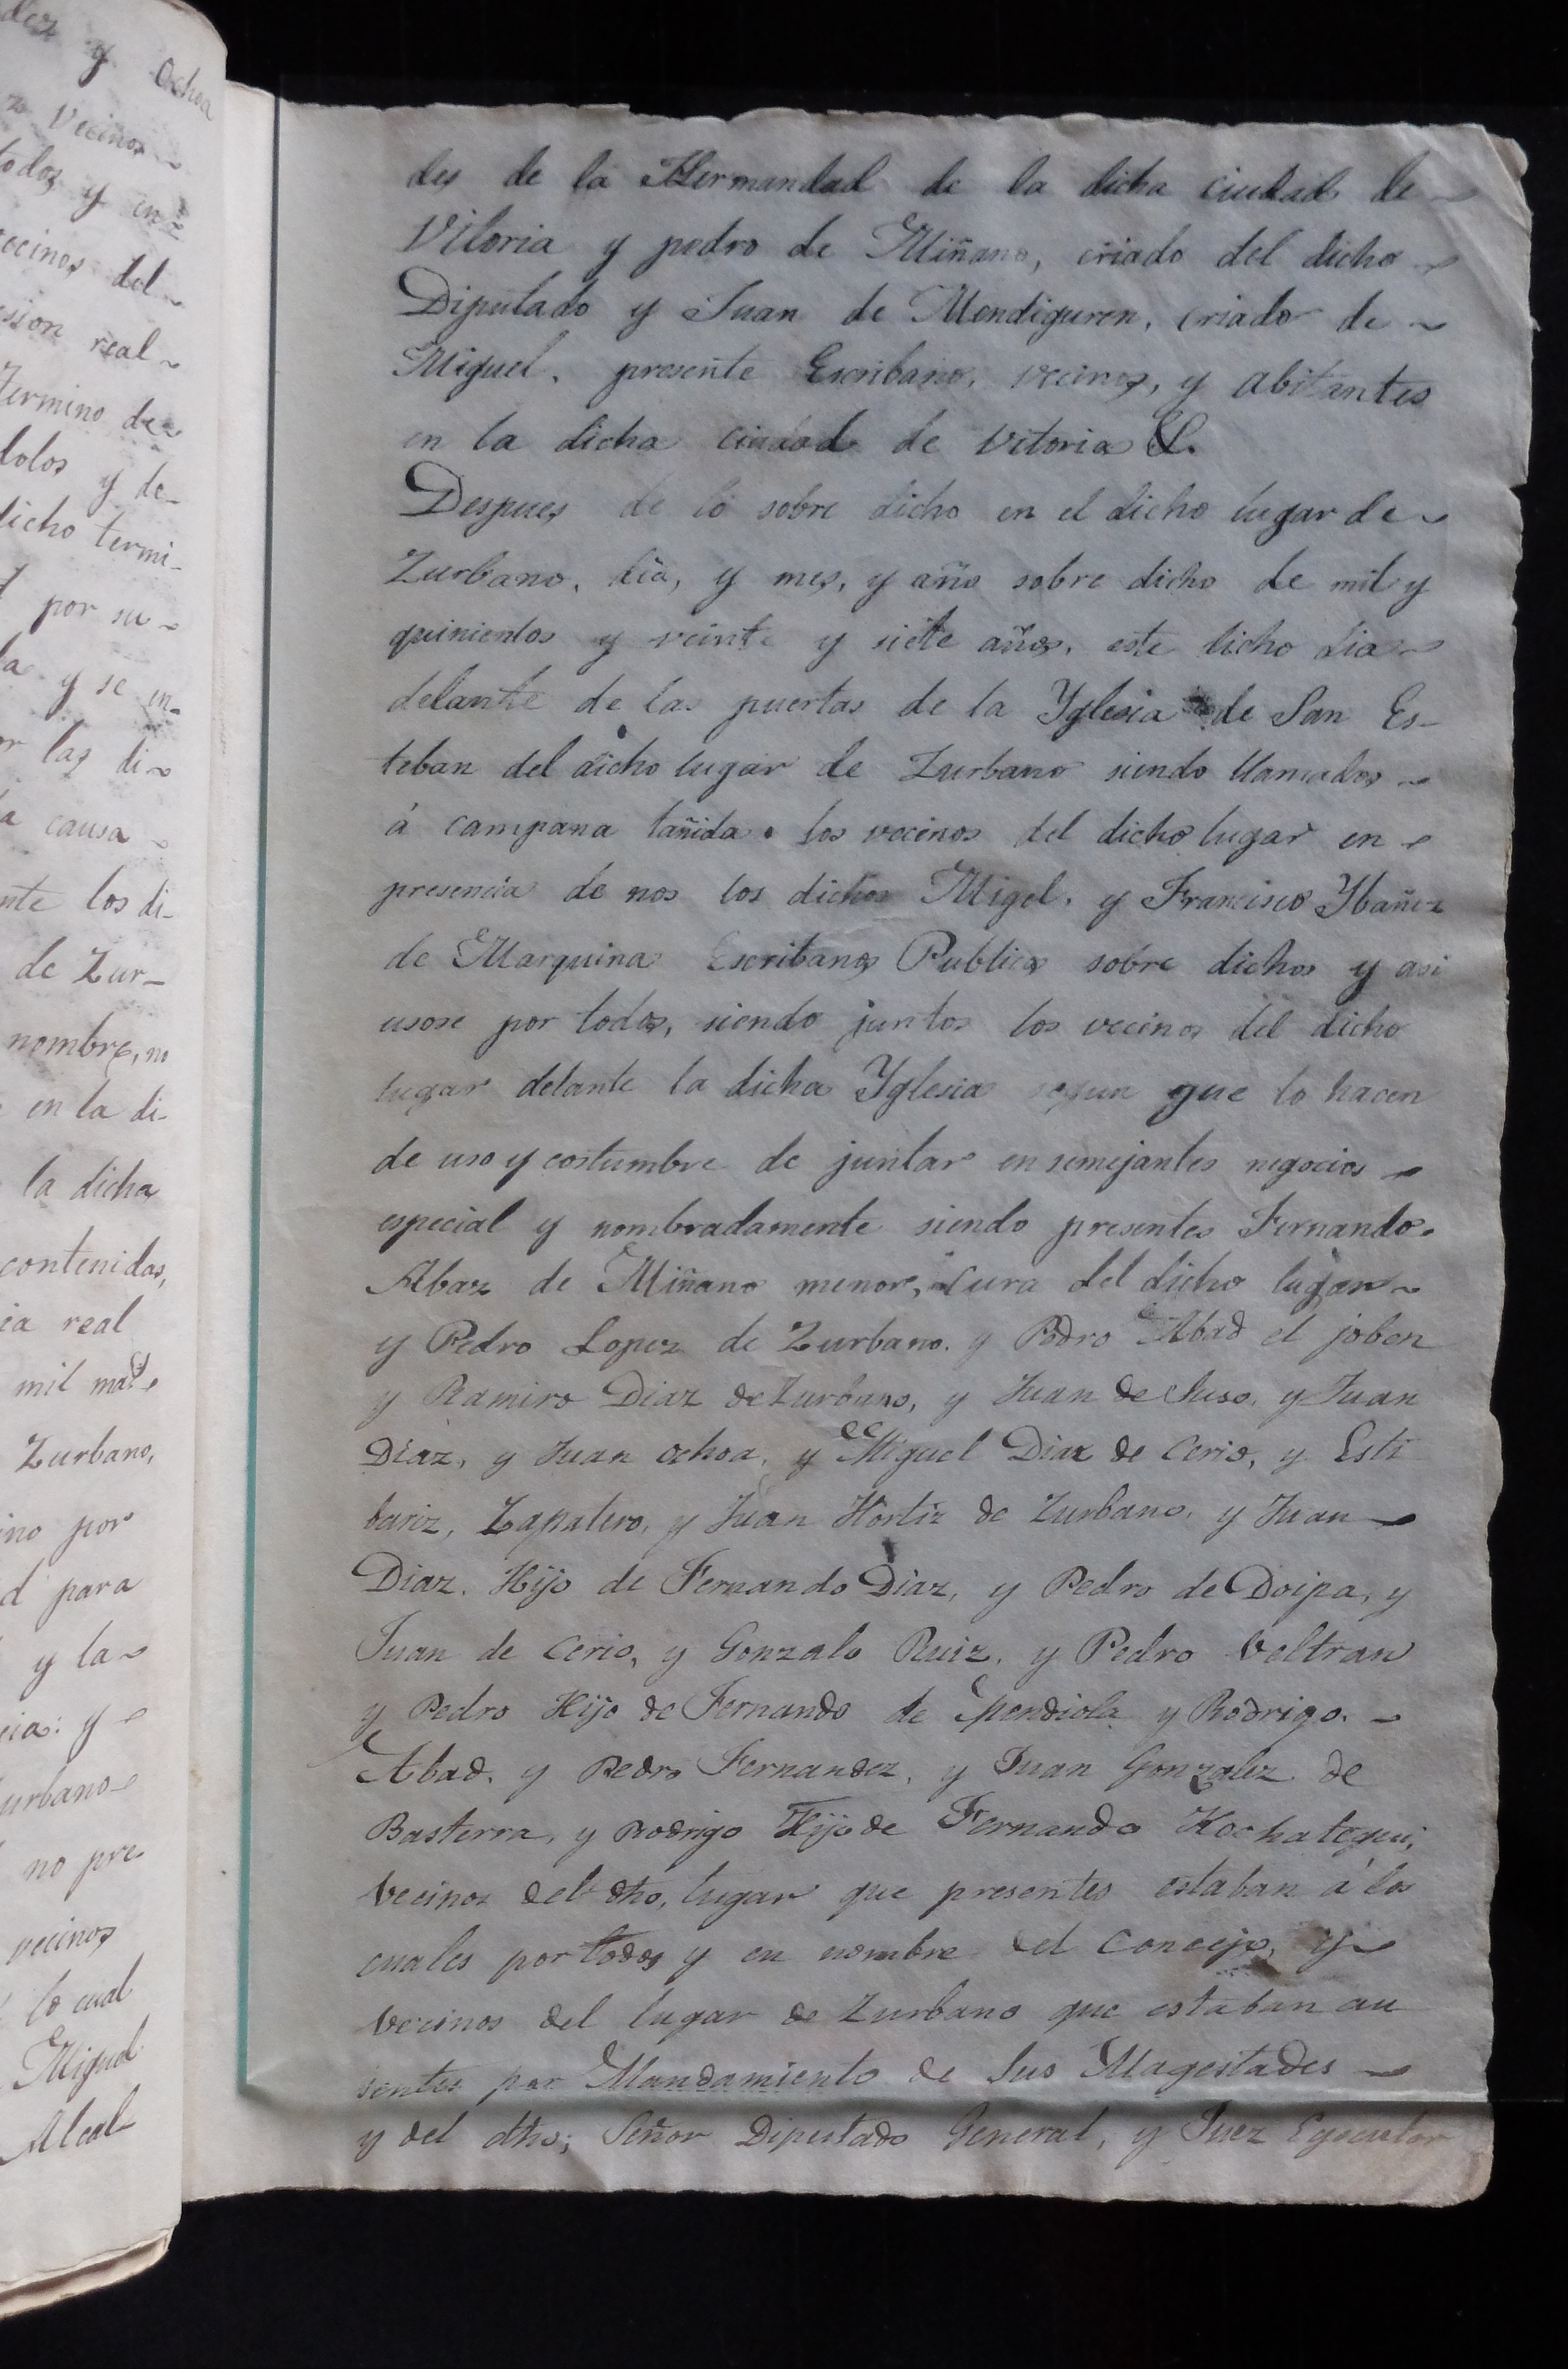 des de la Hermandad de la dicha ciudad de
Vitoria y pedro de Miñano, criado del dicho
Diputado y Juan de Mendiguren, criado de
Miguel, presente Escribano, vecinos, y abitantes
en la dicha ciudad de Vitoria &.
Despues de lo sobre dicho en el dicho lugar de
Zurbano, dia, y mes, y año sobre dicho de mil y
quinientos y veinte y siete años, este dicho dia
delante de las puertas de la Yglesia de San Es-
teban del dicho lugar de Zurbano siendo llamados
á campana tañida los vecinos del dicho lugar en
presencia de nos los dichos Migel, y Francisco Ybañez
de Marquina Escribanos Publicos sobre dichos y asi
usose por todos, siendo juntos los vecinos del dicho
lugar delante la dicha Yglesia segun que lo hacen
de uso y costumbre de juntar en semejantes negocios
especial y nombradamente siendo presentes Fernando
Abaz de Miñano menor, Cura del dicho lugar
y Pedro Lopez de Zurbano, y Pedro Abad el joben
y Ramiro Diaz de Zurbano, y Juan de Suso, y Juan
Diaz, y Juan Ochoa, y Miguel Diaz de Cerio, y Esti
bariz, Zapatero, y Juan Hortiz de Zurbano, y Juan
Diaz. Hijo de Fernando Diaz, y Pedro de Doipa, y
Juan de Cerio, y Gonzalo Ruiz, y Pedro Veltran
y Pedro Hijo de Fernando de Mendiola y Rodrigo.
Abad, y Pedro Fernandez, y Juan Gonzalez de
Basterra, y Rodrigo Hijo de Fernando Hochategui,
Vecinos del dho, lugar que presentes estaban á los
cuales por todos y en nombre del Concejo, y
vecinos del lugar de Zurbano que estaban au
sentes por Mandamiento de Sus Magestades
y del dho; Señor Diputado General, y Juez Egecutor
des y Ochoa
Vecinos
todos y en
vecinos del
sion real
Termino de
dolos y de-
dicho termi-
por su
la y se en-
r las di
a causa
nte los di-
de Zur-
nombre, no
en la di-
la dicha
contenidas,
ia real
mil
Zurbano,
ino por
d para
y la
cia: y
urbano
no pre
vecinos
lo cual
Miguel
Alcal